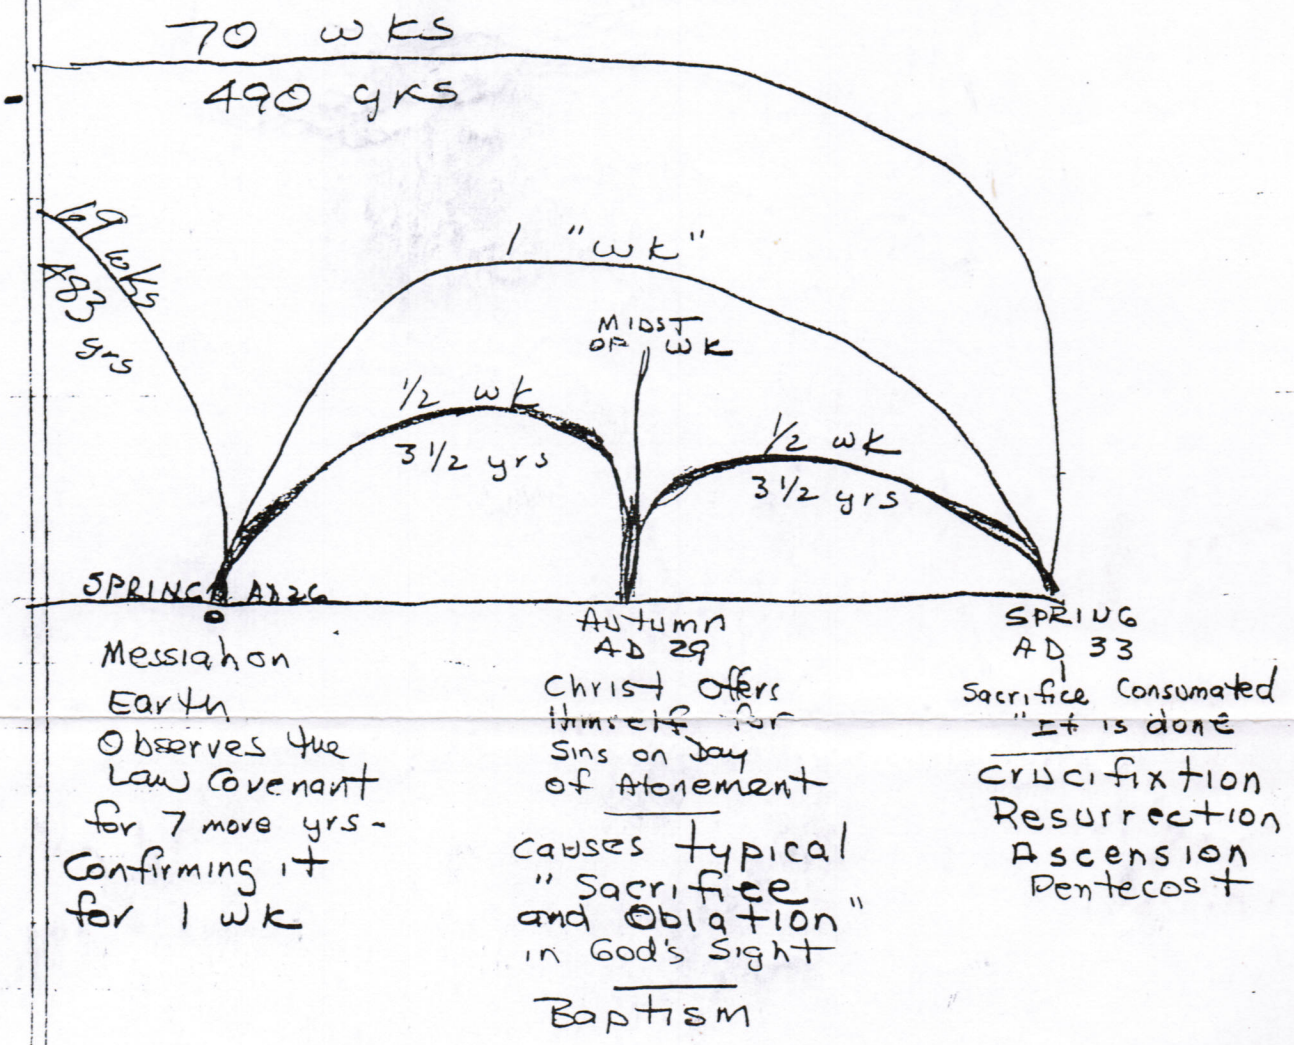 70 wks
490 yrs
69 wks
483
yrs
1 "wk"
MIDST
OF WK
1/2 wk
3 1/2 yrs
1/2 wk
3 1/2 yrs
SPRING AD26
Messiah on
Earth
Observes the
Law Covenant
for 7 more yrs-
Confirming it
for 1 wk
Autumn
AD 29
Christ Offers
Himself for
Sins on Day
of Atonement
causes typical
"Sacrifice
and Oblation"
in God's Sight
Baptism
SPRING
AD 33
Sacrifice Consumated
"It is done
Crucifixtion
Resurrection
Ascension
Pentecost